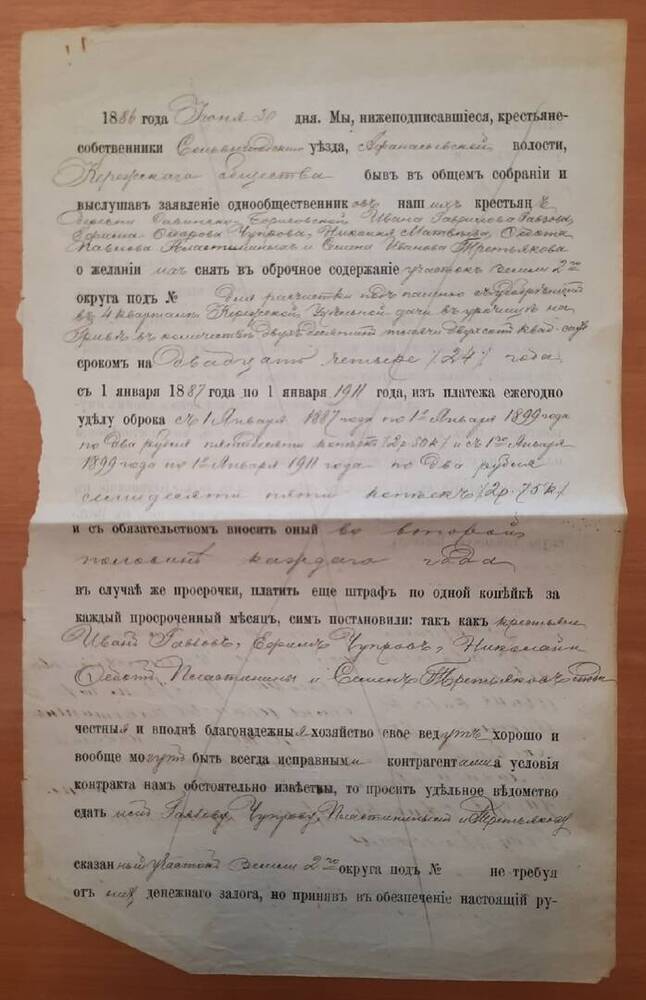 1886 года Июня 30 дня. Мы, нижеподписавшіеся, крестьяне-
собственники Сольвычегодскаго уѣзда, Афанасьевской волости,
общества бывъ въ общемъ собраніи и
выслушавъ заявленіе однообщественниковъ нашихъ крестьянъ
деревни Борисовской Ивана Гаврилова
Ефима Чупрова, Николая Матвѣева,
Павлова Пластининыхъ и Семена Иванова Третьякова
о желаніи ихъ снять въ оброчное содержаніе участокъ земли 2го
округа подъ № для расчистки подъ пашню
въ 4 кварталѣ Удѣльной дачи въ урочищѣ на
въ количествѣ двухъ десятинъ двухсотъ квад. саж
срокомъ на двадцать четыре /24/ года
съ 1 января 1887 года по 1 января 1911 года, изъ платежа ежегодно
удѣлу оброка съ 1 Января 1887 года по 1е Января 1899 года
по два рубля пятьдесятъ копѣекъ /2р. 50к/ и съ 1го Января
1899 года по 1е Января 1911 года по два рубля
семьдесятъ пять копѣекъ /2р. 75к/
и съ обязательствомъ вносить оный во второй
половинѣ каждаго года
въ случаѣ же просрочки, платить еще штрафъ по одной копѣйкѣ за
каждый просроченный мѣсяцъ, симъ постановили: такъ какъ крестьяне
Иванъ Ефимъ Чупровъ, Николай и
Пластинины и Семенъ Третьяковъ
честныя и вполнѣ благонадежныя хозяйство свое ведутъ хорошо и
вообще могутъ быть всегда исправными контрагентами а условія
контракта намъ обстоятельно извѣстны, то просить удѣльное вѣдомство
сдать Чупрову, Пластининымъ и Третьякову
сказанный участокъ земли 2го округа подъ № не требуя
отъ нихъ денежнаго залога, но принявъ въ обезпеченіе настоящій ру-